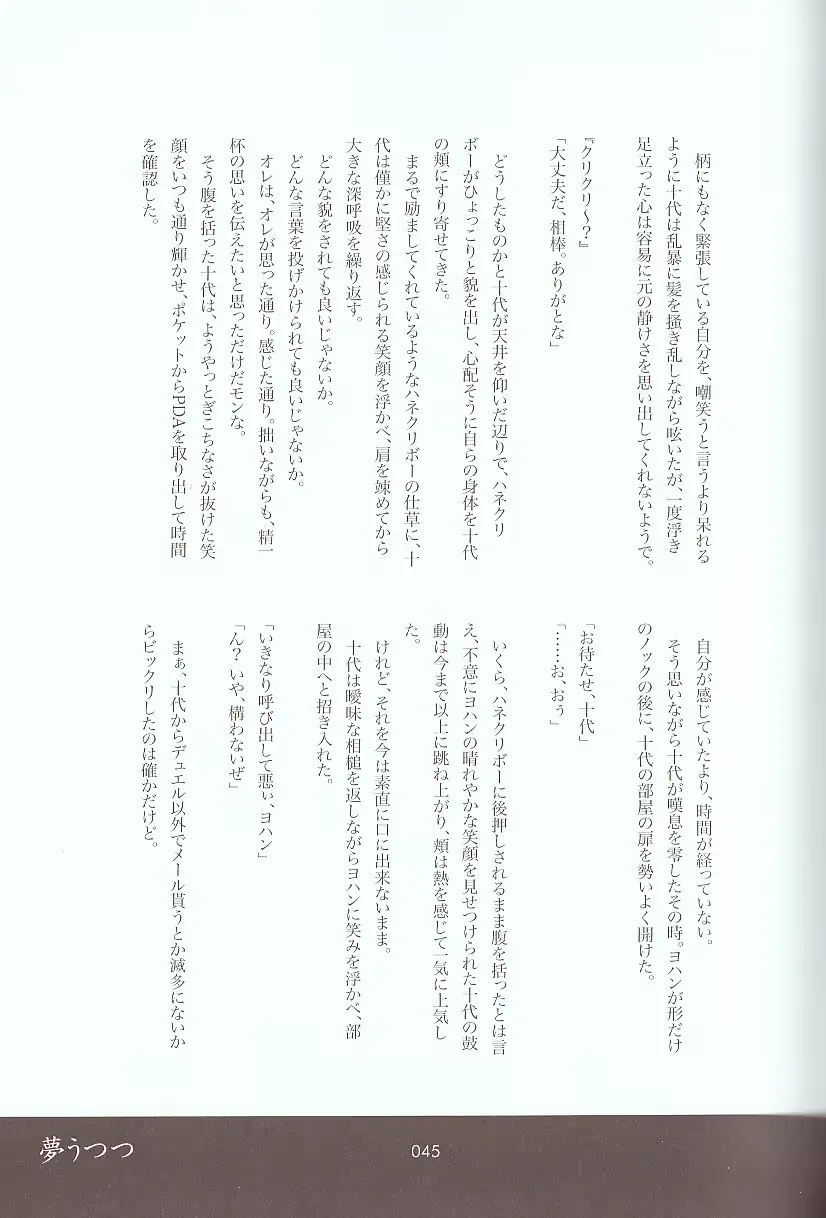 柄にもなく緊張している自分を、嘲笑うと言うより呆れる
ように十代は乱暴に髪を掻き乱しながら呟いたが、一度浮き
足立った心は容易に元の静けさを思い出してくれないようで。
『クリクリ～？』
「大丈夫だ、相棒。ありがとな」
　どうしたものかと十代が天井を仰いだ辺りで、ハネクリ
ボーがひょっこりと貌を出し、心配そうに自らの身体を十代
の頬にすり寄せてきた。
　まるで励ましてくれているようなハネクリボーの仕草に、十
代は僅かに堅さの感じられる笑顔を浮かべ、肩を竦めてから
大きな深呼吸を繰り返す。
　どんな貌をされても良いじゃないか。
　どんな言葉を投げかけられても良いじゃないか。
　オレは、オレが思った通り。感じた通り。拙いながらも、精一
杯の思いを伝えたいと思っただけだモンな。
　そう腹を括った十代は、ようやっとぎこちなさが抜けた笑
顔をいつも通り輝かせ、ポケットからPDAを取り出して時間
を確認した。
　自分が感じていたより、時間が経っていない。
　そう思いながら十代が嘆息を零したその時。ヨハンが形だけ
のノックの後に、十代の部屋の扉を勢いよく開けた。
「お待たせ、十代」
「……お、おぅ」
　いくら、ハネクリボーに後押しされるまま腹を括ったとは言
え、不意にヨハンの晴れやかな笑顔を見せつけられた十代の鼓
動は今まで以上に跳ね上がり、頬は熱を感じて一気に上気し
た。
　けれど、それを今は素直に口に出来ないまま。
　十代は曖昧な相槌を返しながらヨハンに笑みを浮かべ、部
屋の中へと招き入れた。
「いきなり呼び出して悪ぃ、ヨハン」
「ん？　いや、構わないぜ」
　まぁ、十代からデュエル以外でメール貰うとか滅多にないか
らビックリしたのは確かだけど。
夢うつつ
045